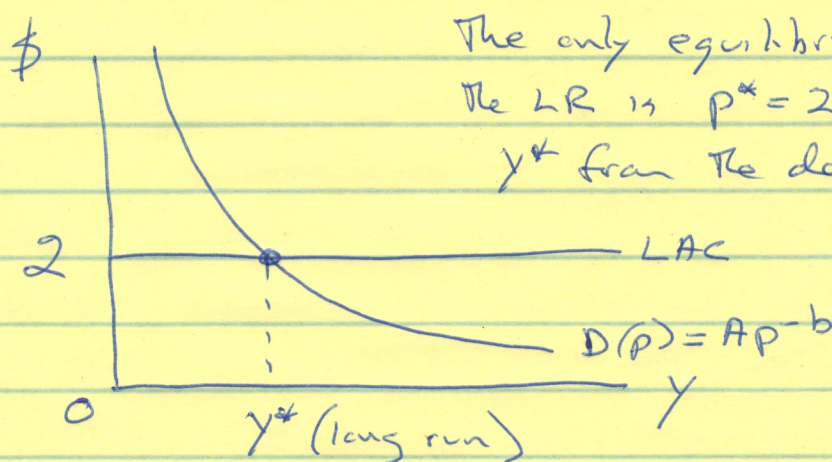 $
The only equilibr
the LR is p* = 2
y* from the de
2
LAC
D(p) = Ap^-b
0
y* (long run)
y